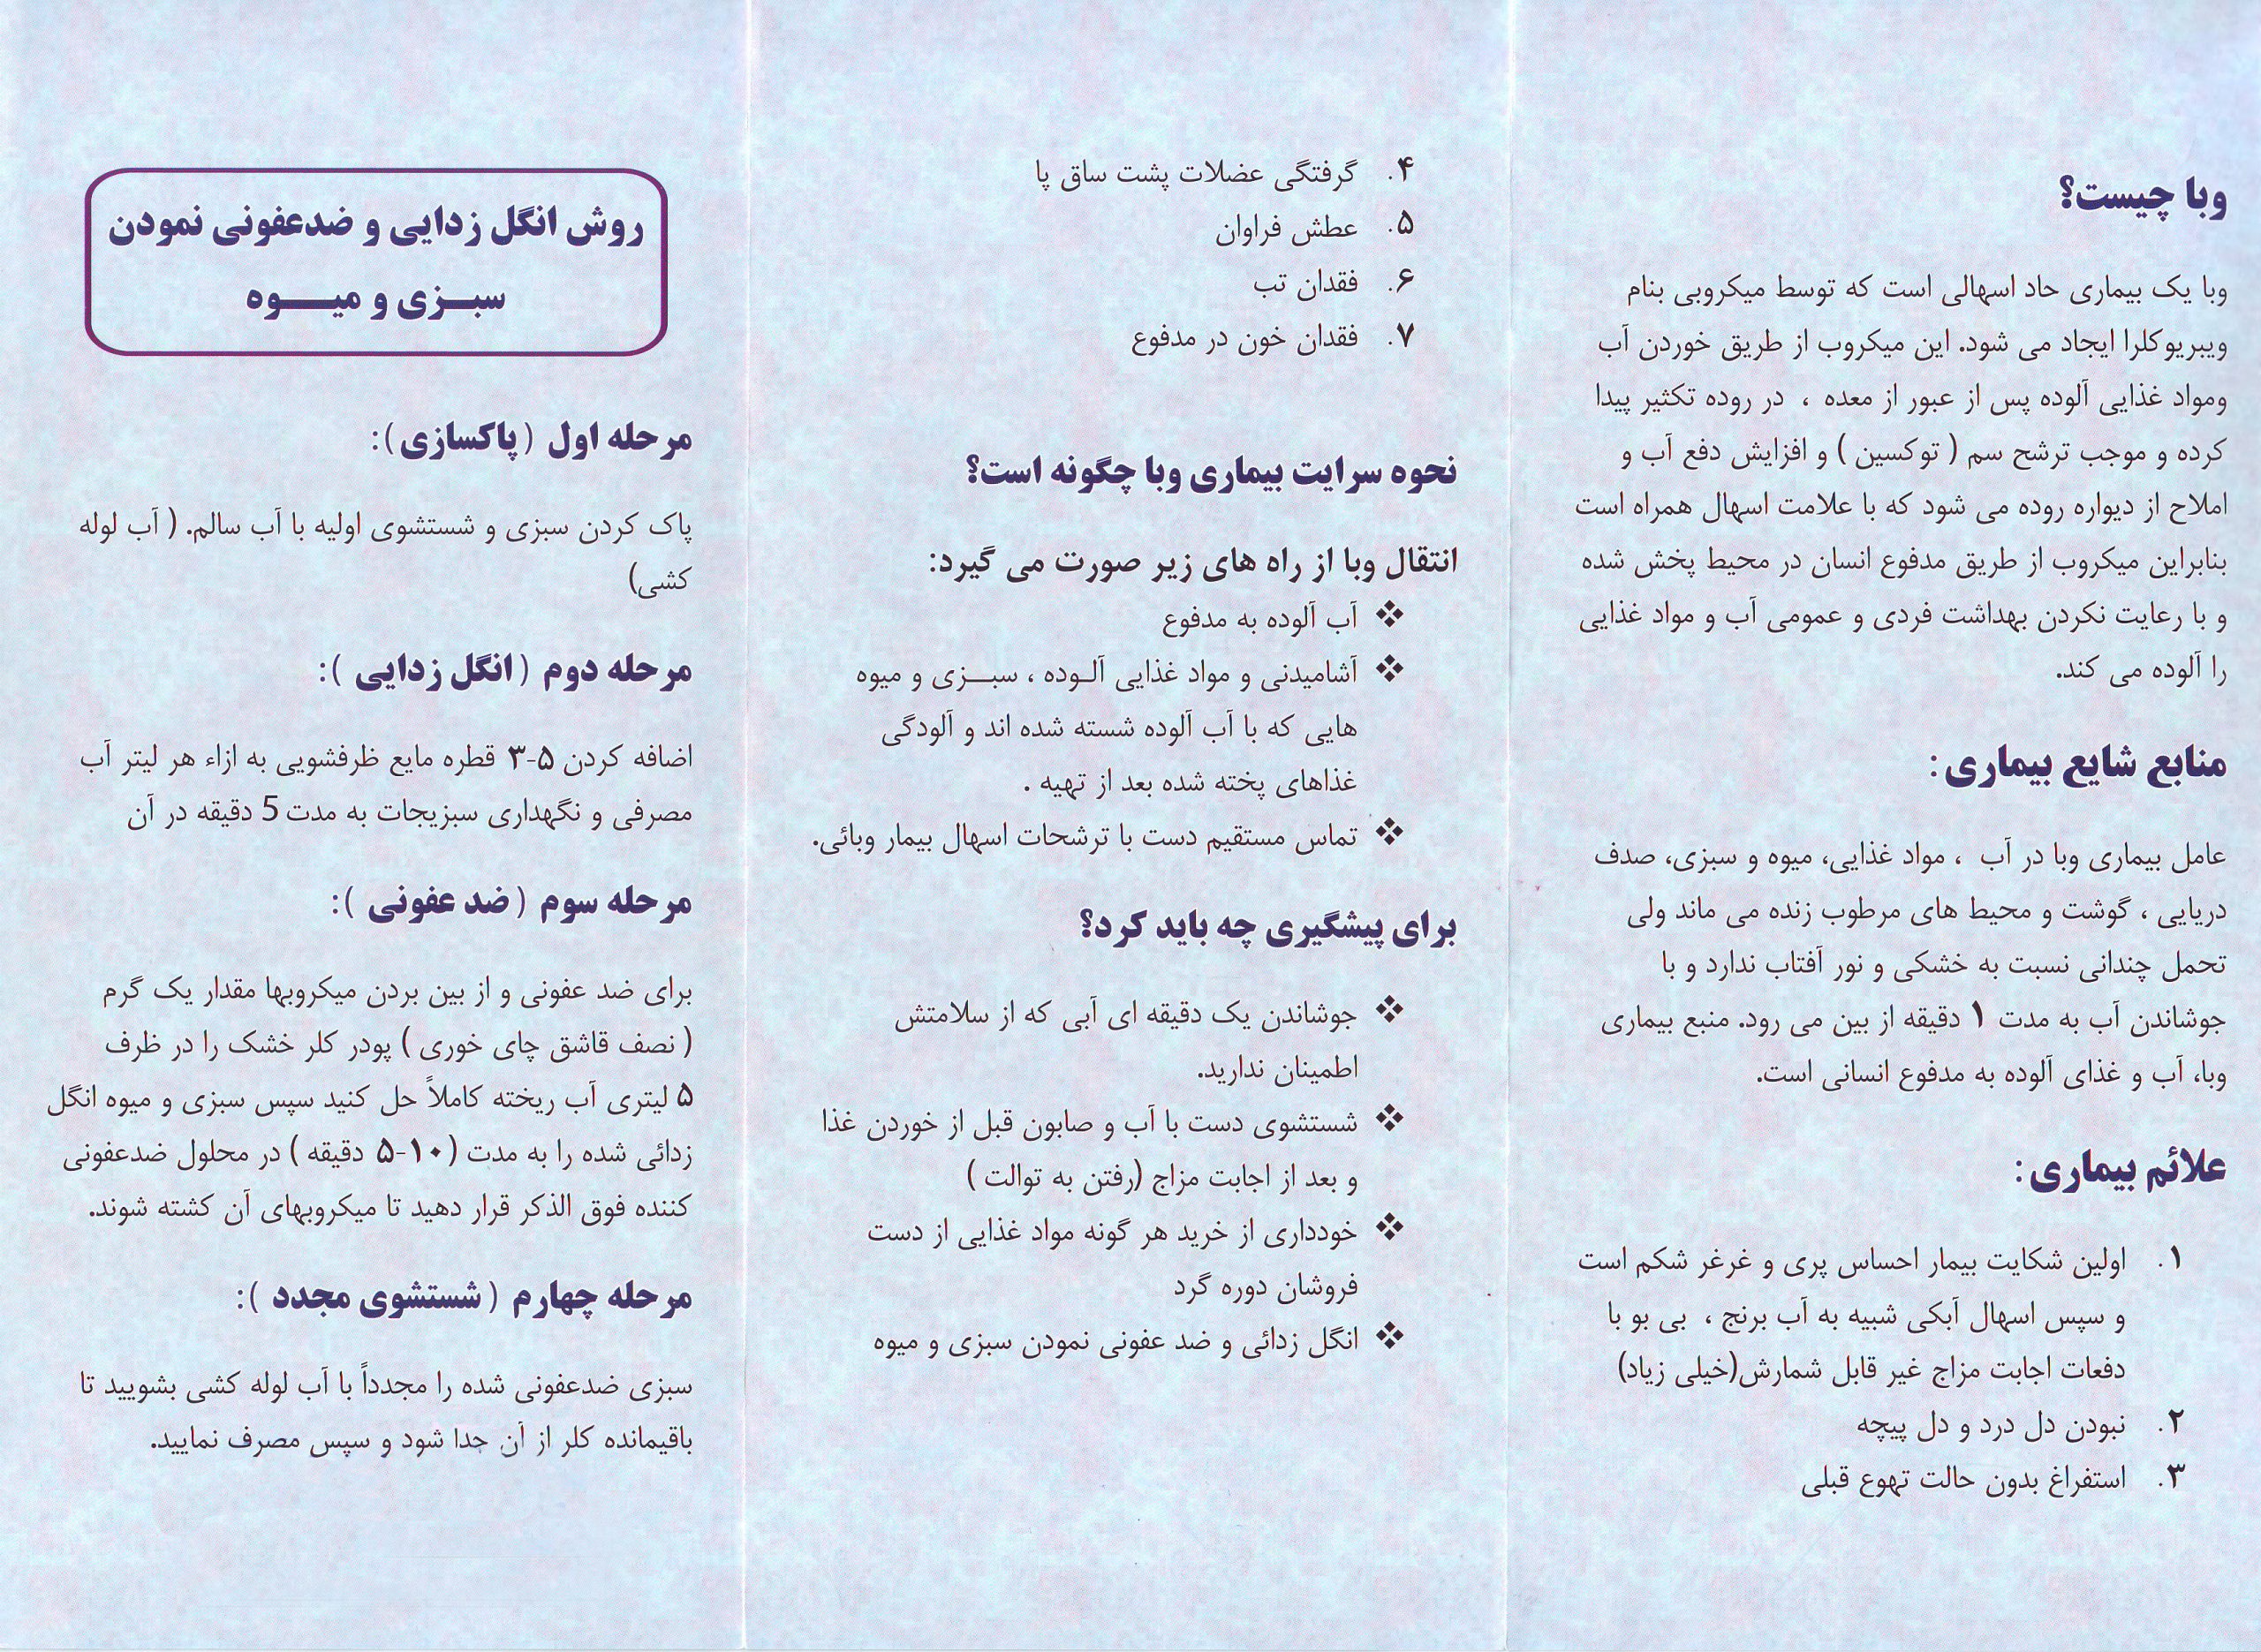 وبا چیست؟
وبا یک بیماری حاد اسهالی است که توسط میکروبی بنام
ویبریوکلرا ایجاد می شود. این میکروب از طریق خوردن آب
ومواد غذایی آلوده پس از عبور از معده ، در روده تکثیر پیدا
کرده و موجب ترشح سم ( توکسین ) و افزایش دفع آب و
املاح از دیواره روده می شود که با علامت اسهال همراه است
بنابراین میکروب از طریق مدفوع انسان در محیط پخش شده
و با رعایت نکردن بهداشت فردی و عمومی آب و مواد غذایی
را آلوده می کند.
منابع شایع بیماری:
عامل بیماری وبا در آب ، مواد غذایی، میوه و سبزی، صدف
دریایی ، گوشت و محیط های مرطوب زنده می ماند ولی
تحمل چندانی نسبت به خشکی و نور آفتاب ندارد و با
جوشاندن آب به مدت ۱ دقیقه از بین می رود. منبع بیماری
وبا، آب و غذای آلوده به مدفوع انسانی است.
علائم بیماری:
۱. اولین شکایت بیمار احساس پری و غرغر شکم است
و سپس اسهال آبکی شبیه به آب برنج ، بی بو با
دفعات اجابت مزاج غیر قابل شمارش(خیلی زیاد)
۲. نبودن دل درد و دل پیچه
۳. استفراغ بدون حالت تهوع قبلی
۴. گرفتگی عضلات پشت ساق پا
۵. عطش فراوان
۶. فقدان تب
۷. فقدان خون در مدفوع
نحوه سرایت بیماری وبا چگونه است؟
انتقال وبا از راه های زیر صورت می گیرد:
❖ آب آلوده به مدفوع
❖ آشامیدنی و مواد غذایی آلـوده ، سبــزی و میوه
هایی که با آب آلوده شسته شده اند و آلودگی
غذاهای پخته شده بعد از تهیه .
❖ تماس مستقیم دست با ترشحات اسهال بیمار وبائی.
برای پیشگیری چه باید کرد؟
❖ جوشاندن یک دقیقه ای آبی که از سلامتش
اطمینان ندارید.
❖ شستشوی دست با آب و صابون قبل از خوردن غذا
و بعد از اجابت مزاج (رفتن به توالت )
❖ خودداری از خرید هر گونه مواد غذایی از دست
فروشان دوره گرد
❖ انگل زدائی و ضد عفونی نمودن سبزی و میوه
روش انگل زدایی و ضدعفونی نمودن
سبــزی و میــــوه
مرحله اول (پاکسازی):
پاک کردن سبزی و شستشوی اولیه با آب سالم. ( آب لوله
کشی)
مرحله دوم (انگل زدایی ):
اضافه کردن ۵-۳ قطره مایع ظرفشویی به ازاء هر لیتر آب
مصرفی و نگهداری سبزیجات به مدت 5 دقیقه در آن
مرحله سوم (ضد عفونی ):
برای ضد عفونی و از بین بردن میکروبها مقدار یک گرم
( نصف قاشق چای خوری ) پودر کلر خشک را در ظرف
۵ لیتری آب ریخته کاملاً حل کنید سپس سبزی و میوه انگل
زدائی شده را به مدت (۱۰-۵ دقیقه ) در محلول ضدعفونی
کننده فوق الذکر قرار دهید تا میکروبهای آن کشته شوند.
مرحله چهارم (شستشوی مجدد ):
سبزی ضدعفونی شده را مجدداً با آب لوله کشی بشویید تا
باقیمانده کلر از آن جدا شود و سپس مصرف نمایید.